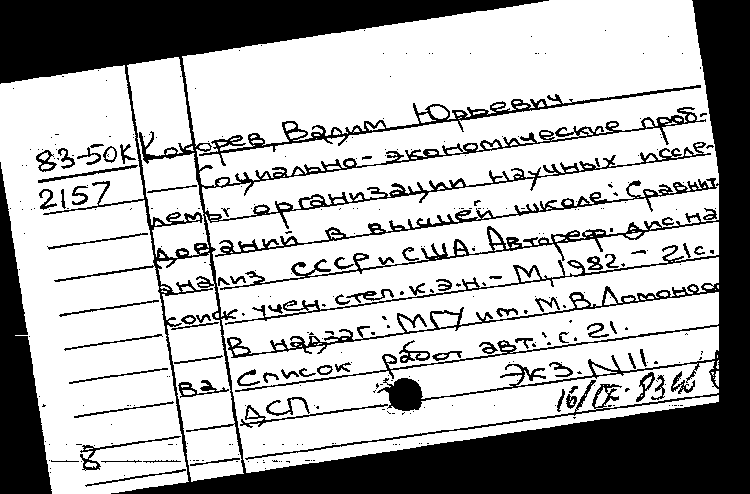 83-50К Кокорев, Вадим Юрьевич.
2157 Социально-экономические проб-
лемы организации научных иссле-
дований в высшей школе: Сравнит.
анализ СССР и США. Автореф. дис. на
соиск. учен. степ. к.э.н. - М., 1982. - 21с.
В надзаг.: МГУ им. М.В. Ломоносо
ва. Список работ авт.: с. 21.
ДСП. Экз. N 11.
8 16/IX-83